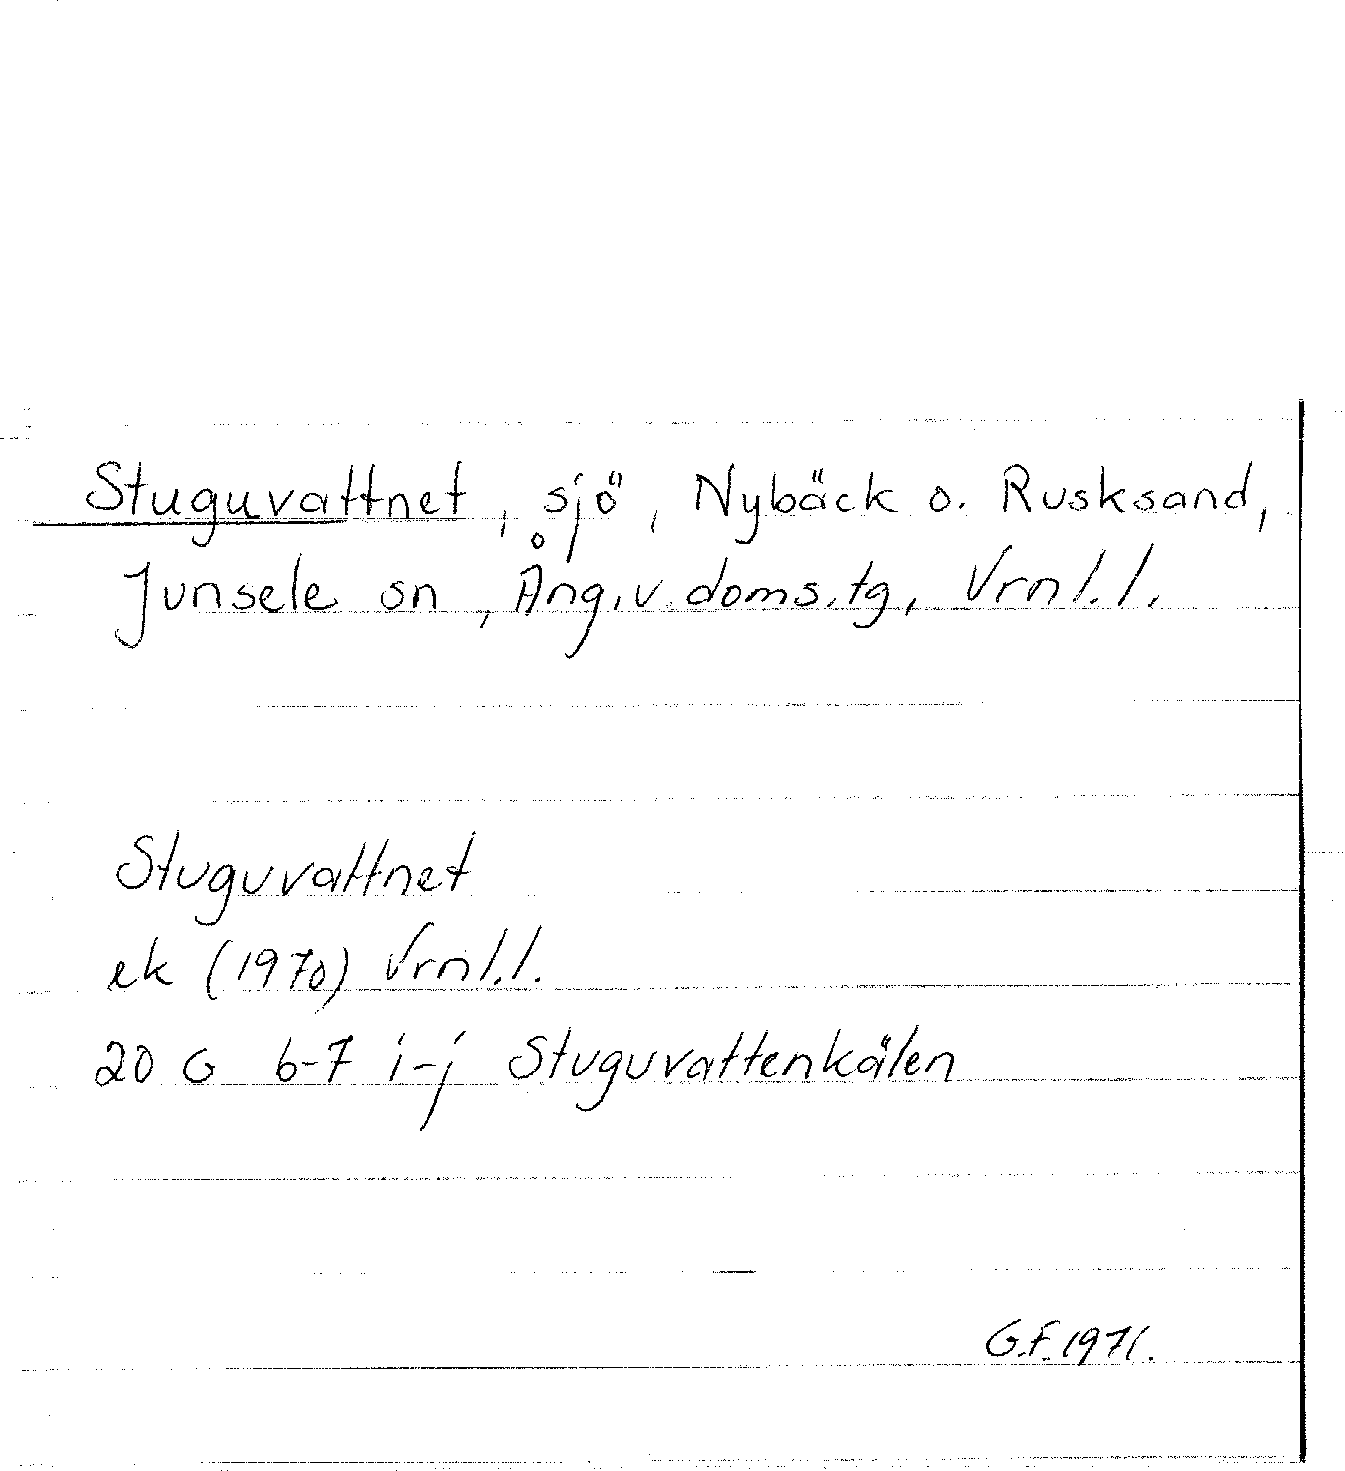 Stuguvattnet, sjö, Nybäck o. Rusksand,
Junsele sn, Ång.v. doms.tg, Vrnl.l.
Stuguvattnet
ek (1970) Vrnl.l.
20 G 6-7 i-j Stuguvattenkälen
G.F. 1971.